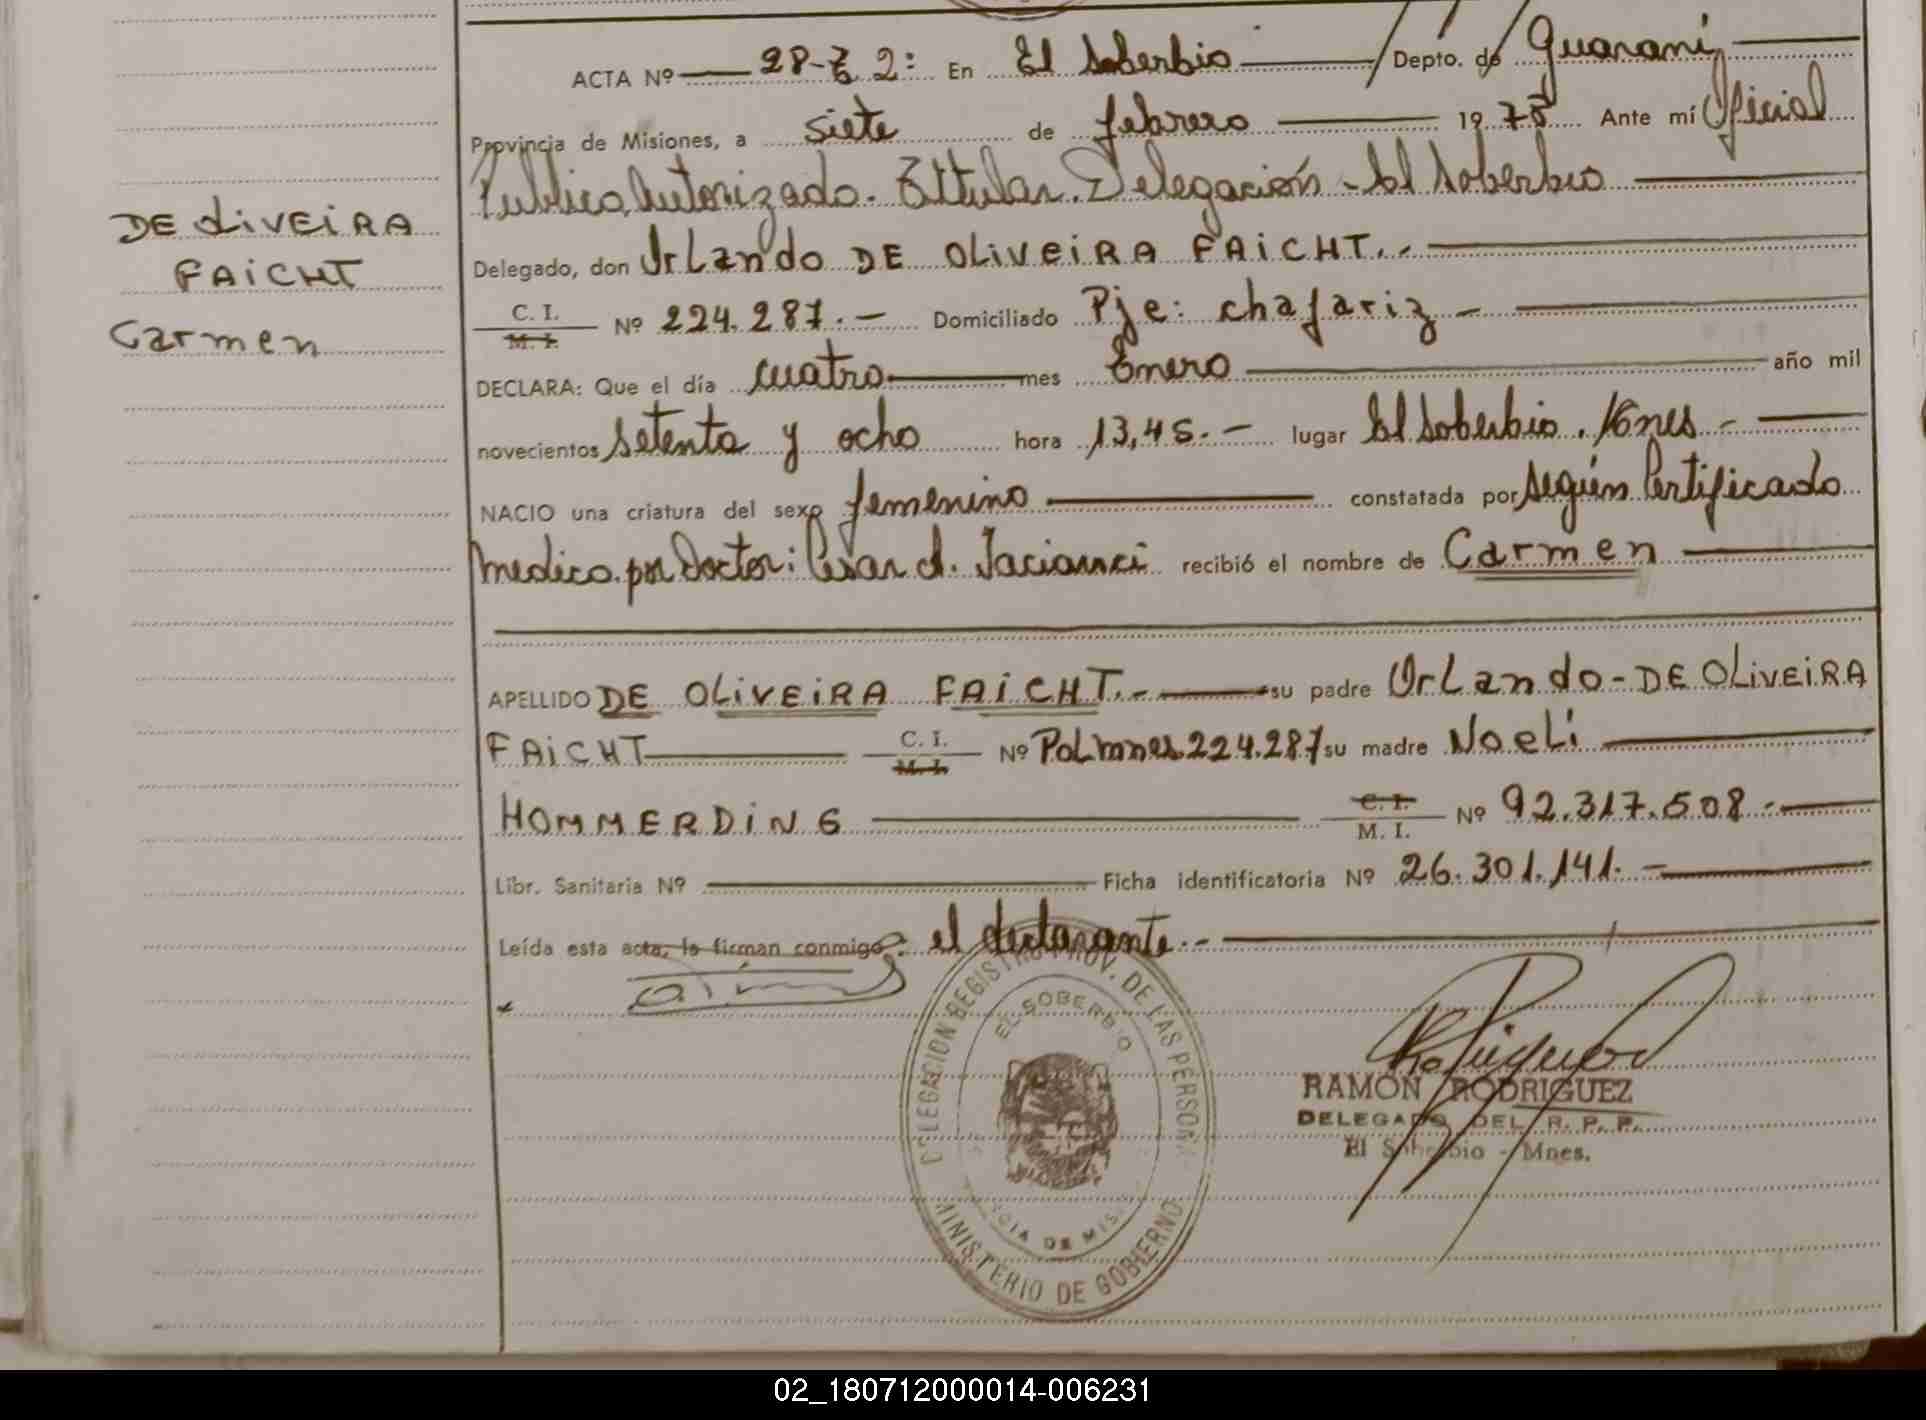 ACTA Nº 28-T 2: En El Soberbio Depto. de Guaraní
Provincia de Misiones, a siete de febrero 1978 Ante mí Oficial
Publico Autorizado. Titular. Delegación - El Soberbio
DE OLIVEIRA
Delegado, don OrLando DE OLIVEIRA FAICHT.-
FAICHT
C. I.
M. I. Nº 224.287.- Domiciliado Pje: chafariz -
Carmen
DECLARA: Que el día cuatro mes Enero año mil
novecientos setenta y ocho hora 13,45.- lugar El Soberbio. Mnes -
NACIO una criatura del sexo femenino constatada por según Certificado
medico por Doctor: Cesar A. recibió el nombre de Carmen
APELLIDO DE OLIVEIRA FAICHT.- su padre OrLando - DE OLIVEIRA
FAICHT C. I. M. I. Nº PoL mnes 224.287 su madre NoeLi
HOMMERDING C. I. M. I. Nº 92.317.508.-
Libr. Sanitaria Nº Ficha identificatoria Nº 26.301.141.-
Leída esta acta, la firman conmigo: el declarante.-
DELEGACION REGISTRO PROV. DE LAS PERSONAS
EL SOBERBIO
PROVINCIA DE MIS.
MINISTERIO DE GOBIERNO
RAMÓN RODRIGUEZ
DELEGADO DEL R. P. P.
El Soberbio - Mnes.
02_180712000014-006231